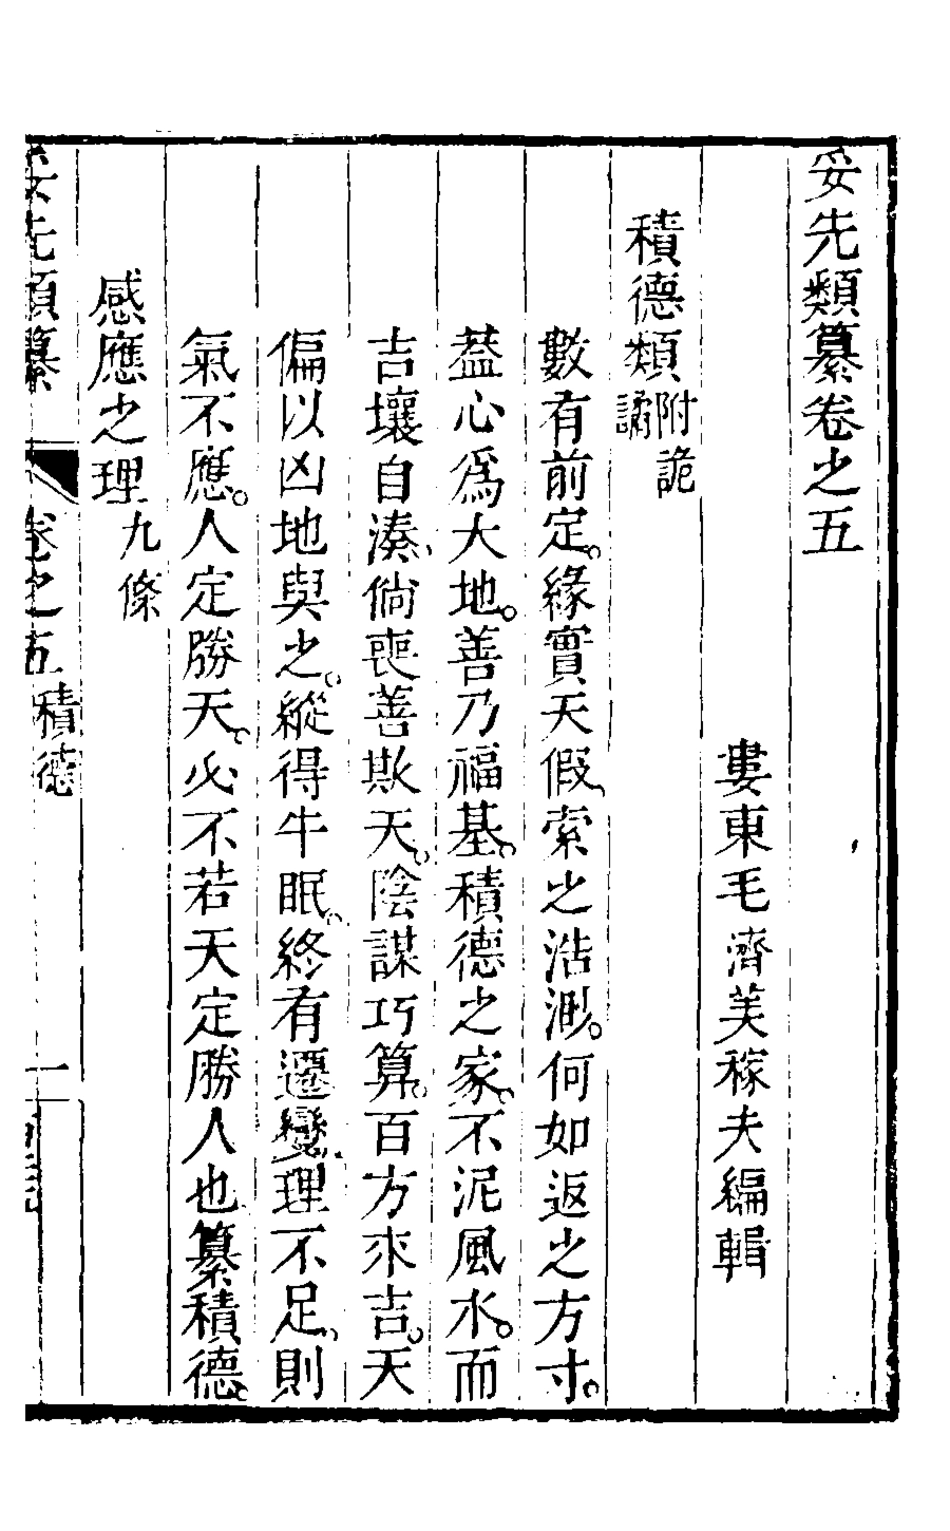 妥先類纂卷之五
婁東毛濟美稼夫編輯
積德類附詭譎
數有前定。緣實天假、索之浩渺。何如返之方寸。
葢心爲大地。善乃福基。積德之家。不泥風水。而
吉壤自湊、倘喪善欺天。陰謀巧算。百方來吉。天
偏以凶地與之。縱得牛眠。終有遷變。理不足、則
氣不應。人定勝天。必不若天定勝人也。纂積德。
感應之理九條
妥先類纂 卷之五 積德 一